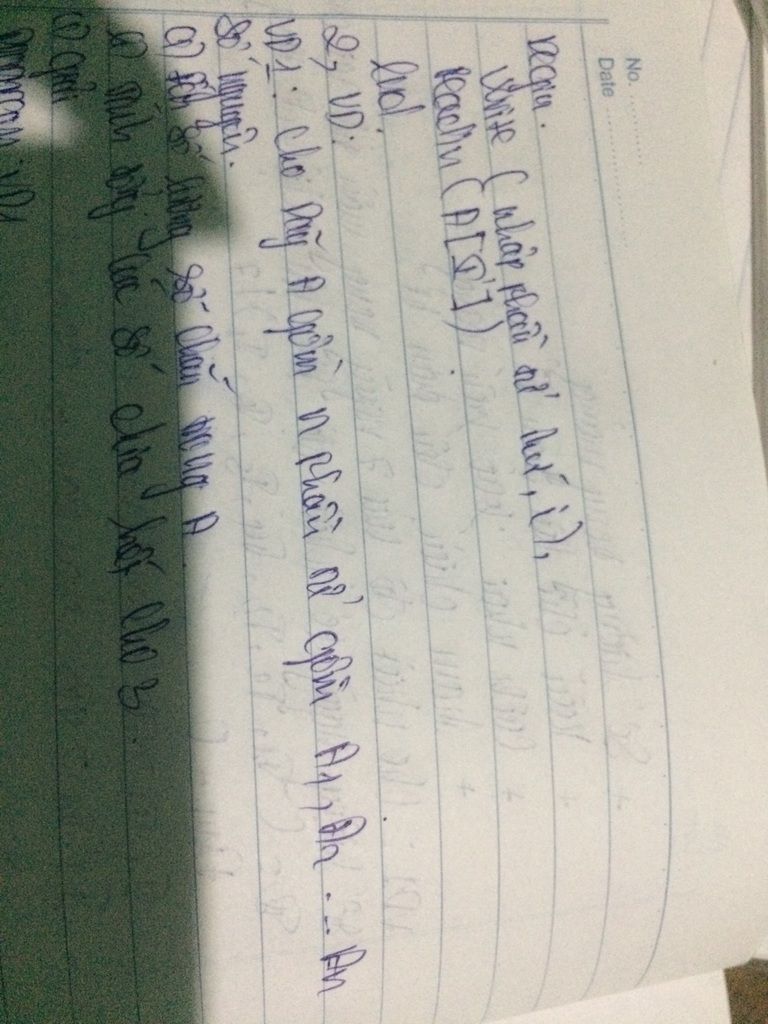 No. ............
Date ............
begin.
write ( nhập phần tử thứ', i),
readln ( A[i] )
end.
2, VD:
VD1: Cho dãy A gồm n phần tử gồm A1, A2 ... An
số nguyên.
a) đếm số lượng số chẵn trong A
các số chia hết cho 3.
giải
program VD1